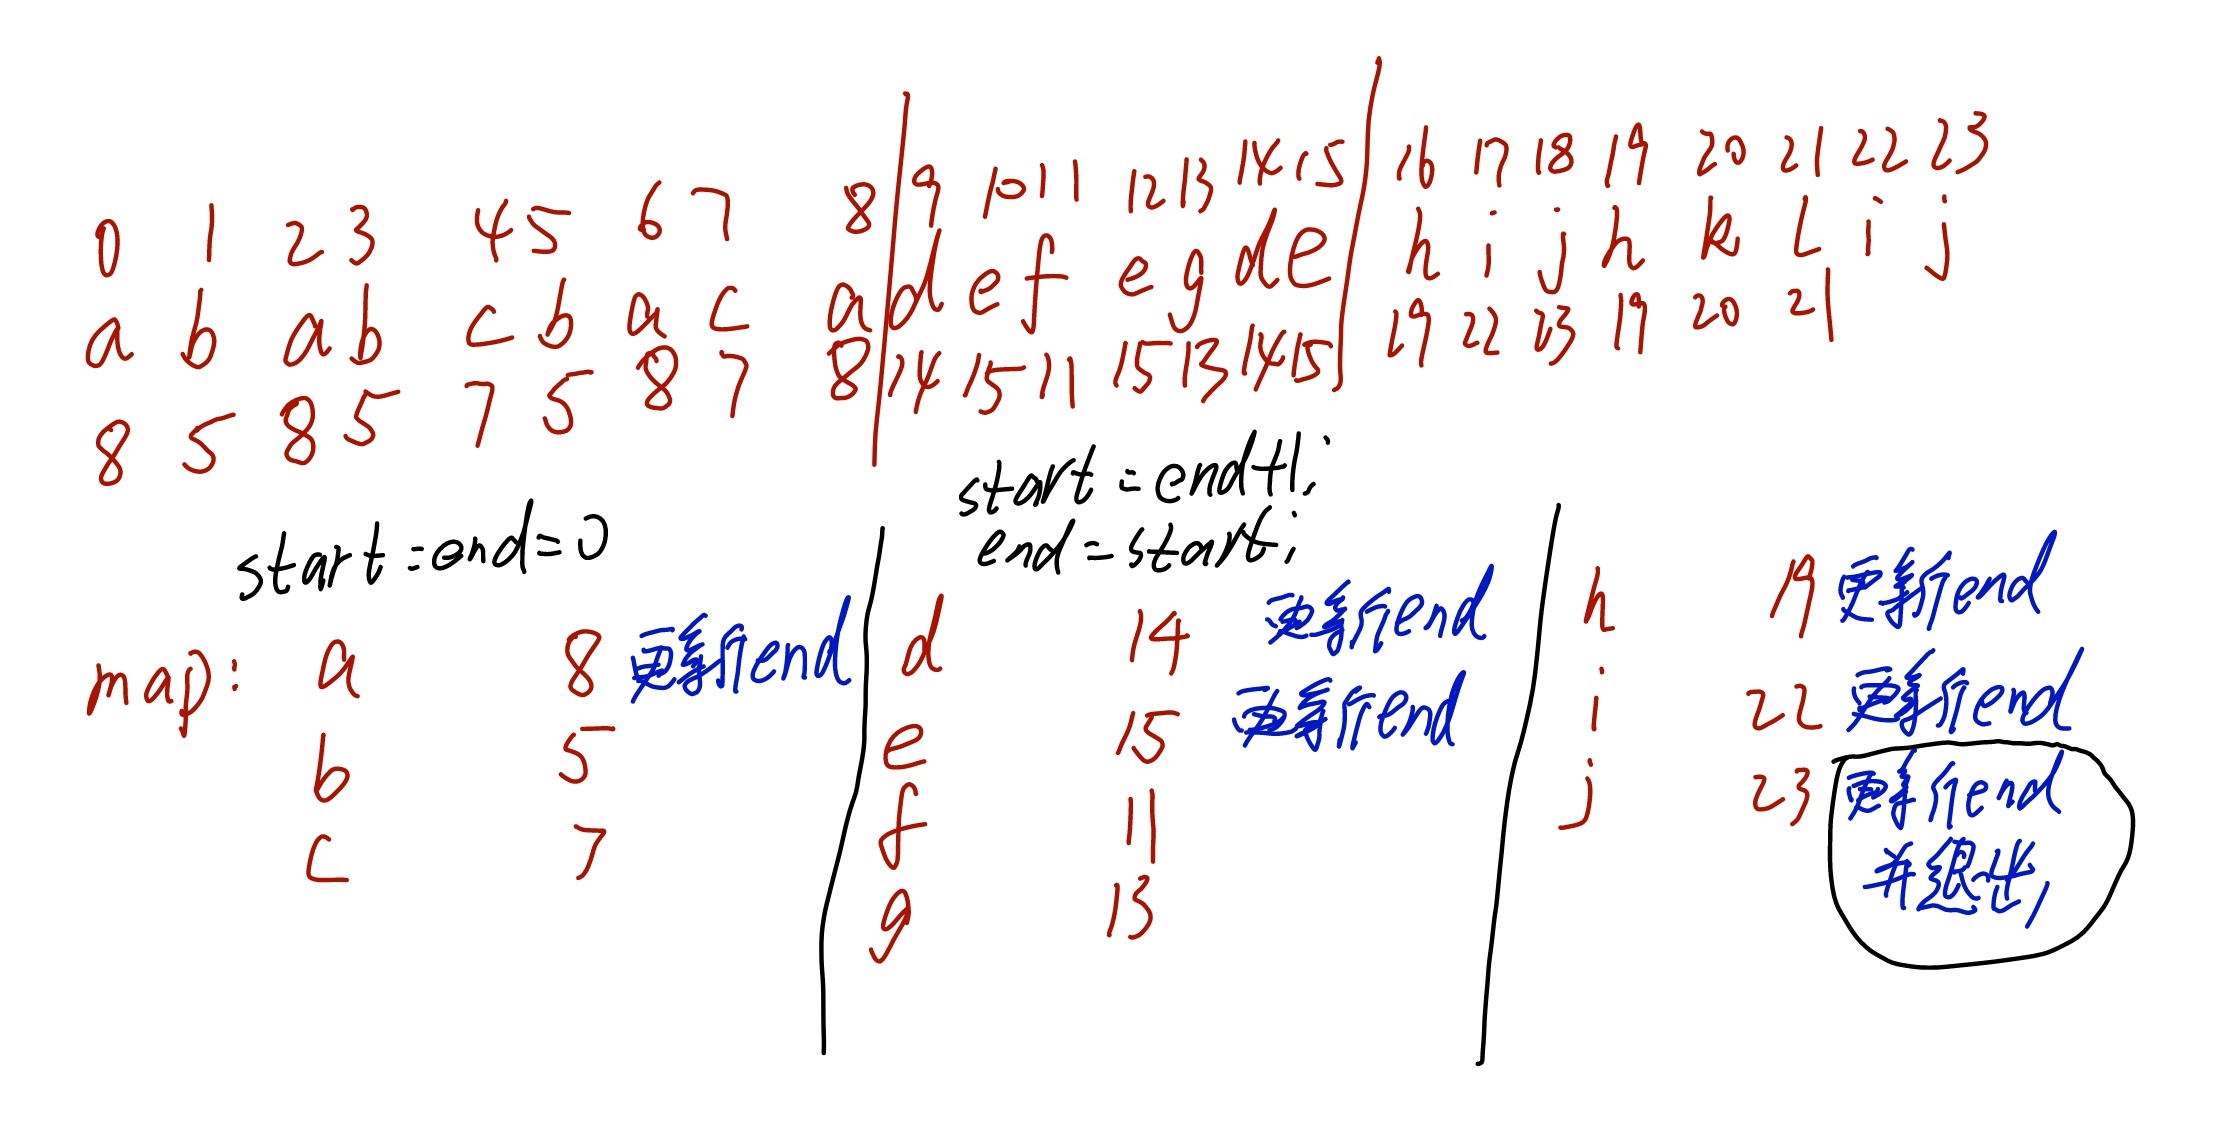 0 1 2 3 4 5 6 7 8 9 10 11 12 13 14 15 16 17 18 19 20 21 22 23
a b a b c b a c a d e f e g d e h i j h k l i j
8 5 8 5 7 5 8 7 8 14 15 11 15 13 14 15 19 22 23 19 20 21
start=end=0
start=end+1;
end=start;
map: a 8 更新end
b 5
c 7
d 14 更新end
e 15 更新end
f 11
g 13
h 19 更新end
i 22 更新end
j 23 更新end
并退出,